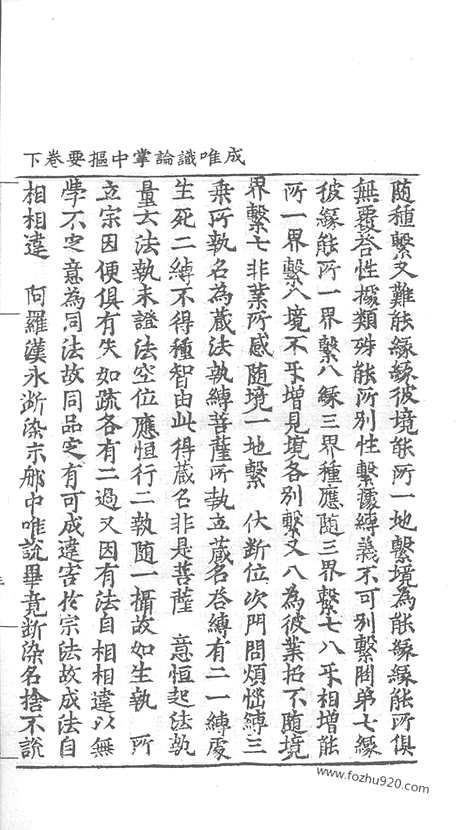 成唯識論掌中樞要卷下
随種繫又難能緣緣彼境能所一地繫境為能緣緣能所俱
無覆荅性據類殊能所別性繫據縛義不可別繫問第七緣
彼緣能所一界繫八緣三界種應随三界繫七八乎相增能
所一界繫八境不乎增見境各別繫又八為彼業招不随境
界繫七非業所感随境一地繫　伏断位次門問煩惱縛三
乗所執名為蔵法執縛菩薩所執立蔵名荅縛有二一縛處
生死二縛不得種智由此得蔵名非是菩薩　意恒起法執
量云法執未證法空位應恒行二執随一攝故如生執　所
立宗因便俱有失如疏各有二過又因有法自相相違以無
學不定意為同法故同品定有可成違害扵宗法故成法自
相相違　阿羅漢永断染示郍中唯說畢竟断染名捨不說
www.fozhu920.com